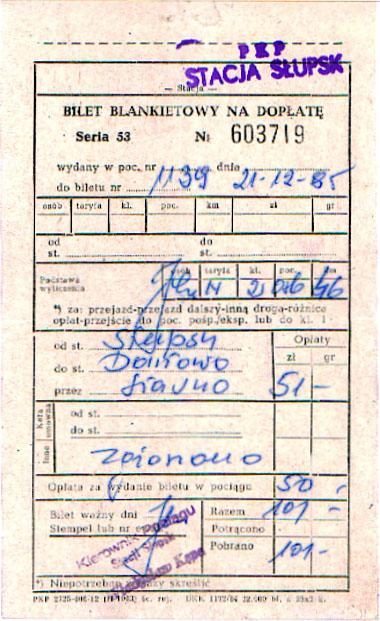 PKP
STACJA SŁUPSK
— Stacja —
BILET BLANKIETOWY NA DOPŁATĘ
Seria 53 № 603719
wydany w poc. nr 1139 dnia 21-12-85
do biletu nr
osób taryfa kl. poc. km zł gr
od do
st. st.
Podstawa wyliczenia osób taryfa kl. poc. km
N 2 046
*) za: przejazd-przejazd dalszy-inną drogą-różnicę
opłat-przejście do poc. posp./eksp. lub do kl. 1
Opłaty
zł gr
od st. Słupsk
do st. Darłowo
przez Sławno 51 —
Kara umowna
od st.
do st.
Inne
Opłata za wydanie biletu w pociągu 50 -
Bilet ważny dni Razem 101 -
Stempel lub nr Potrącono
Pobrano 101 -
Kierownik Pociągu
Stacji Słupsk
*) Niepotrzebne skreślić